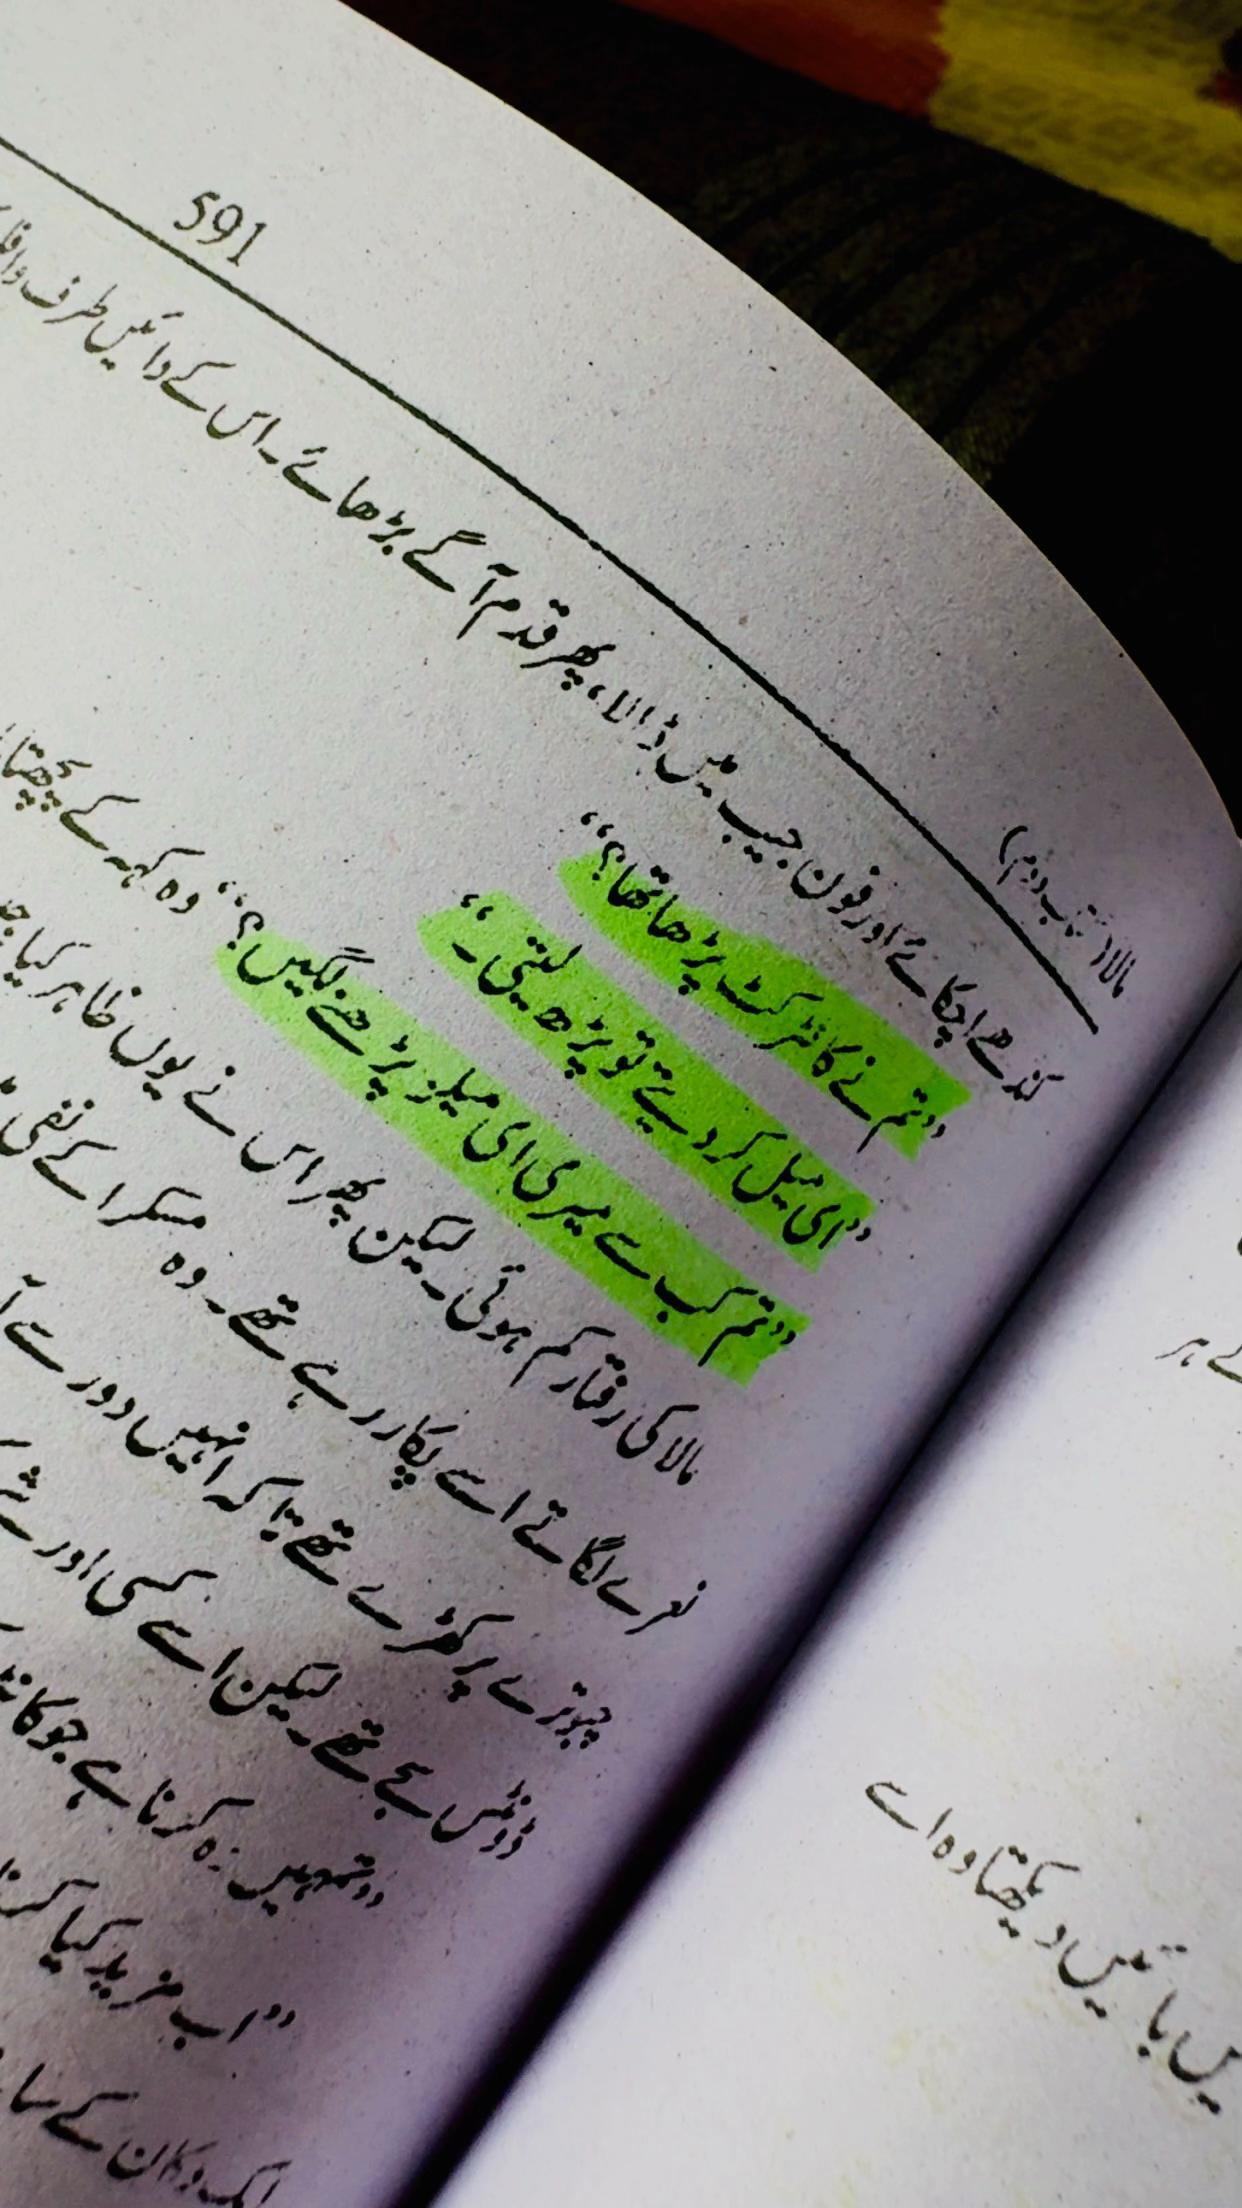 مالا (کتاب دوم)
591
کندھے اچکائے اور فون جیب میں ڈالا، پھر قدم آگے بڑھائے۔ اس کے دائیں طرف واقع
”تم نے کانٹریکٹ پڑھا تھا؟“
”ای میل کر دیتے تو پڑھ لیتی۔“
”تم کب سے میری ای میلز پڑھنے لگیں؟“ وہ کہہ کے پچھتایا
مالا کی رفتار کم ہوئی۔ لیکن پھر اس نے یوں ظاہر کیا
نعرے لگاتے اسے پکار رہے تھے۔ وہ مسکرا کے نفی
چبوترے پر کھڑے تھے تاکہ انہیں دور سے
ڈونٹس سجے تھے۔ لیکن اسے کسی اور شے
”تمہیں وہ کرنا ہے جو
”اب مزید کیا کرنا
ایک دکان کے
کے ہر
بائیں دیکھتا وہ اسے